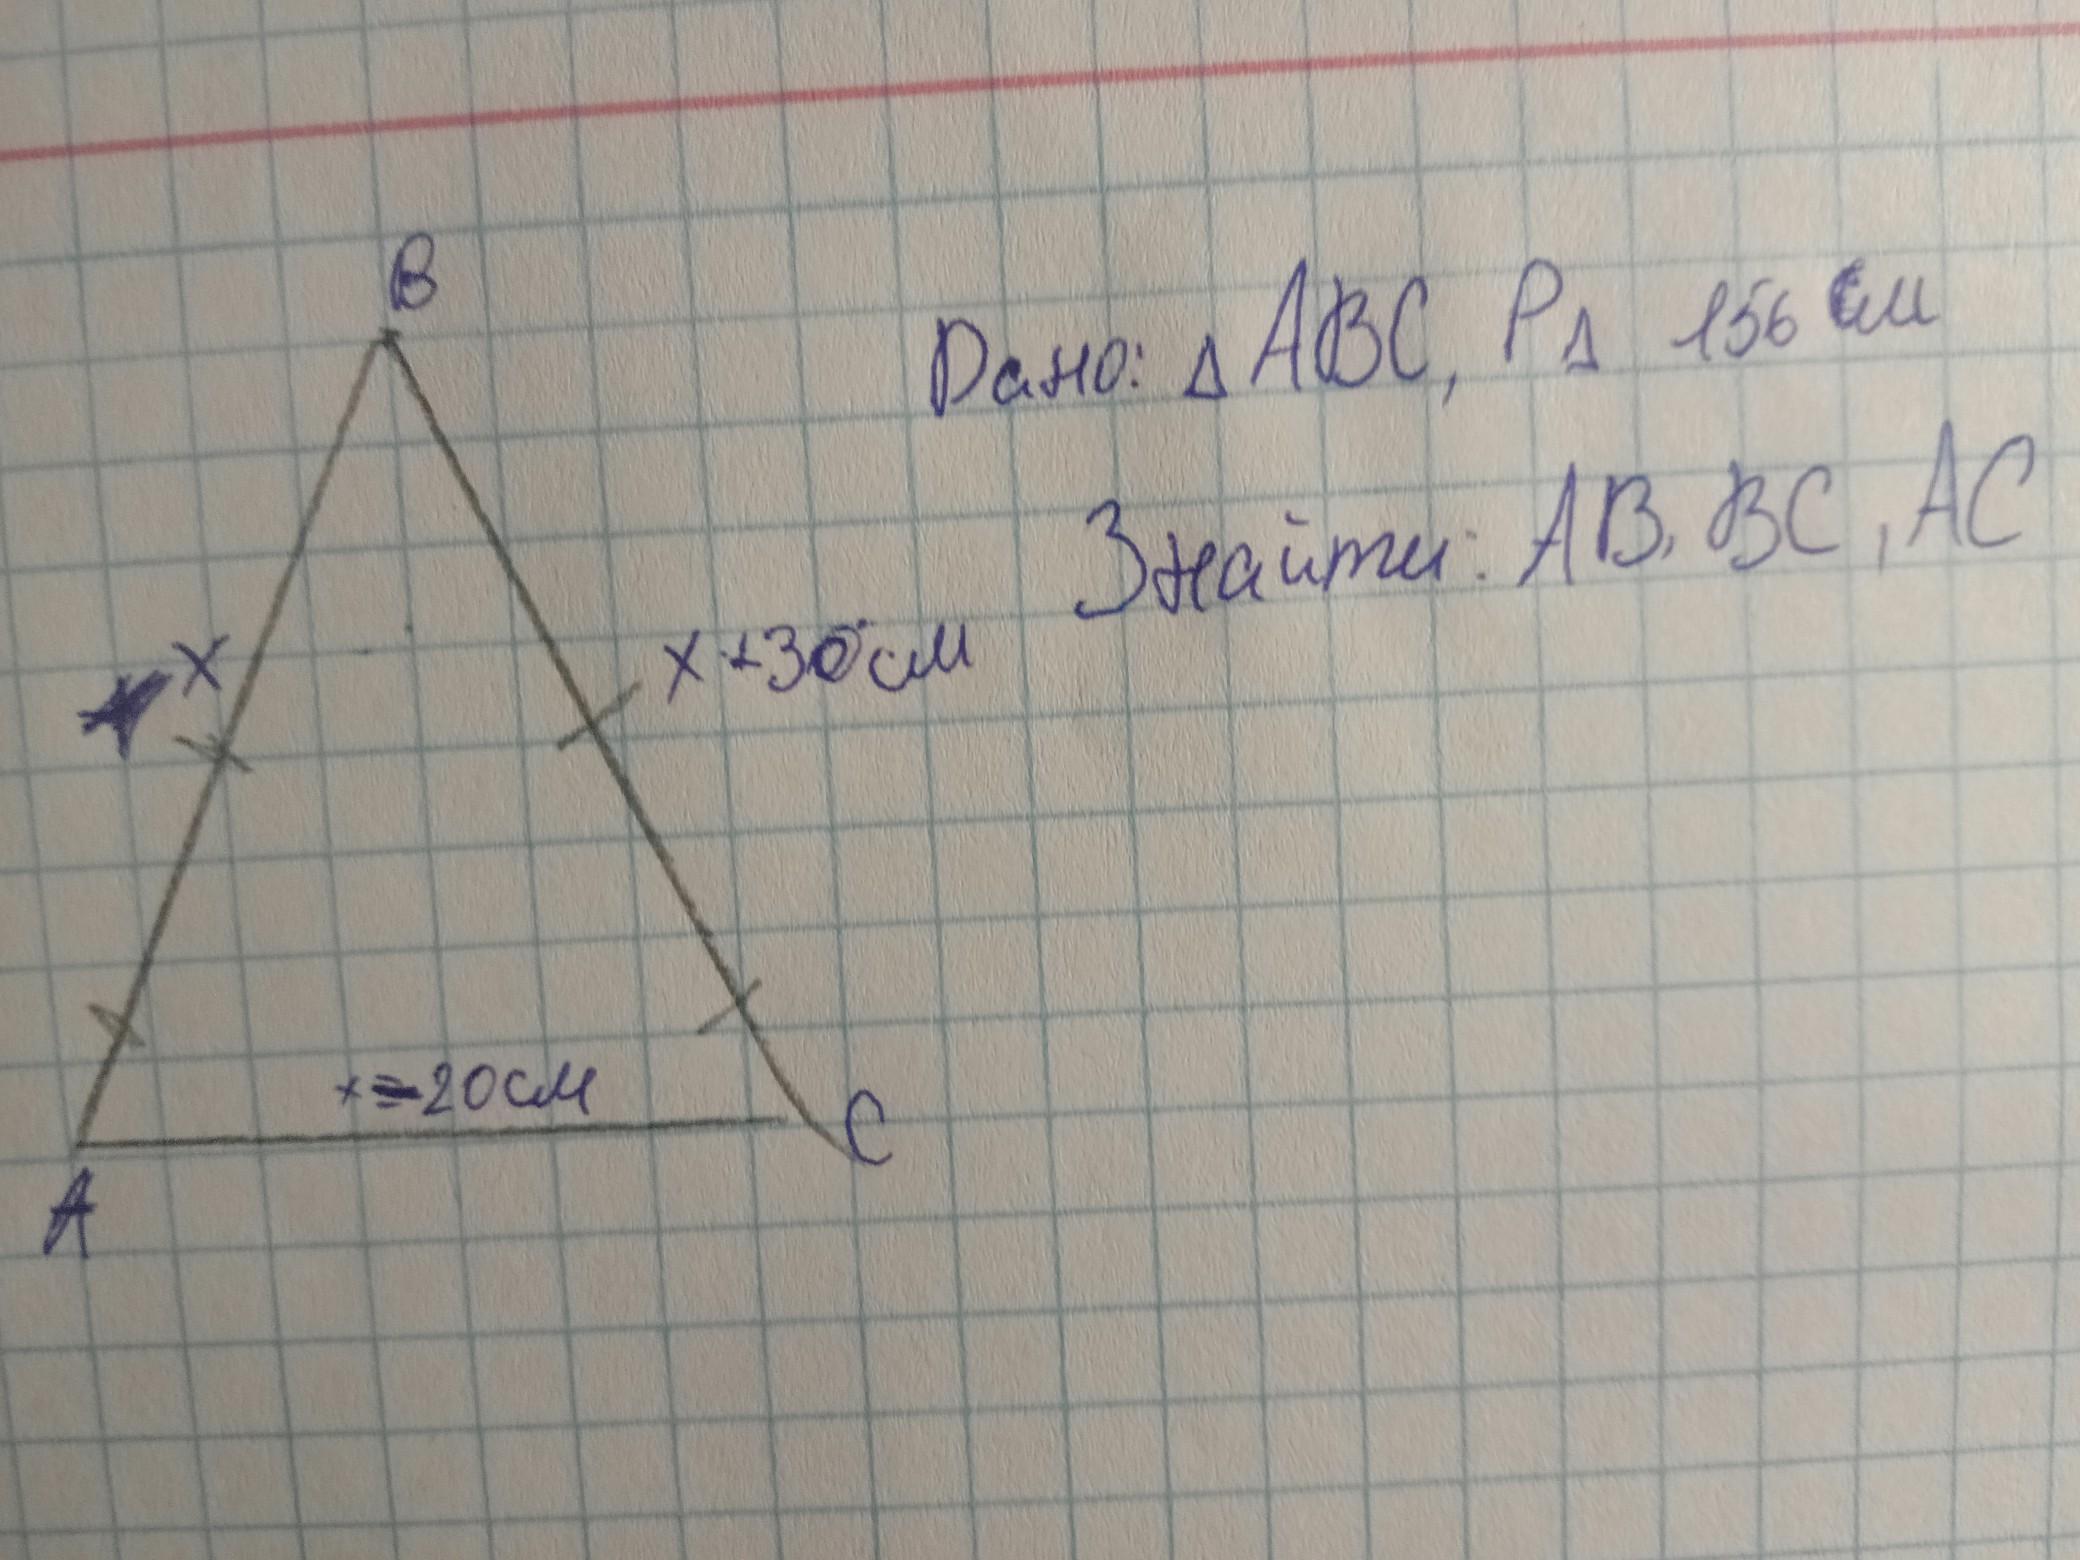 B
Дано: △ ABC, P△ 156 см
Знайти: AB, BC, AC
x
x+30см
x-20см
A
C